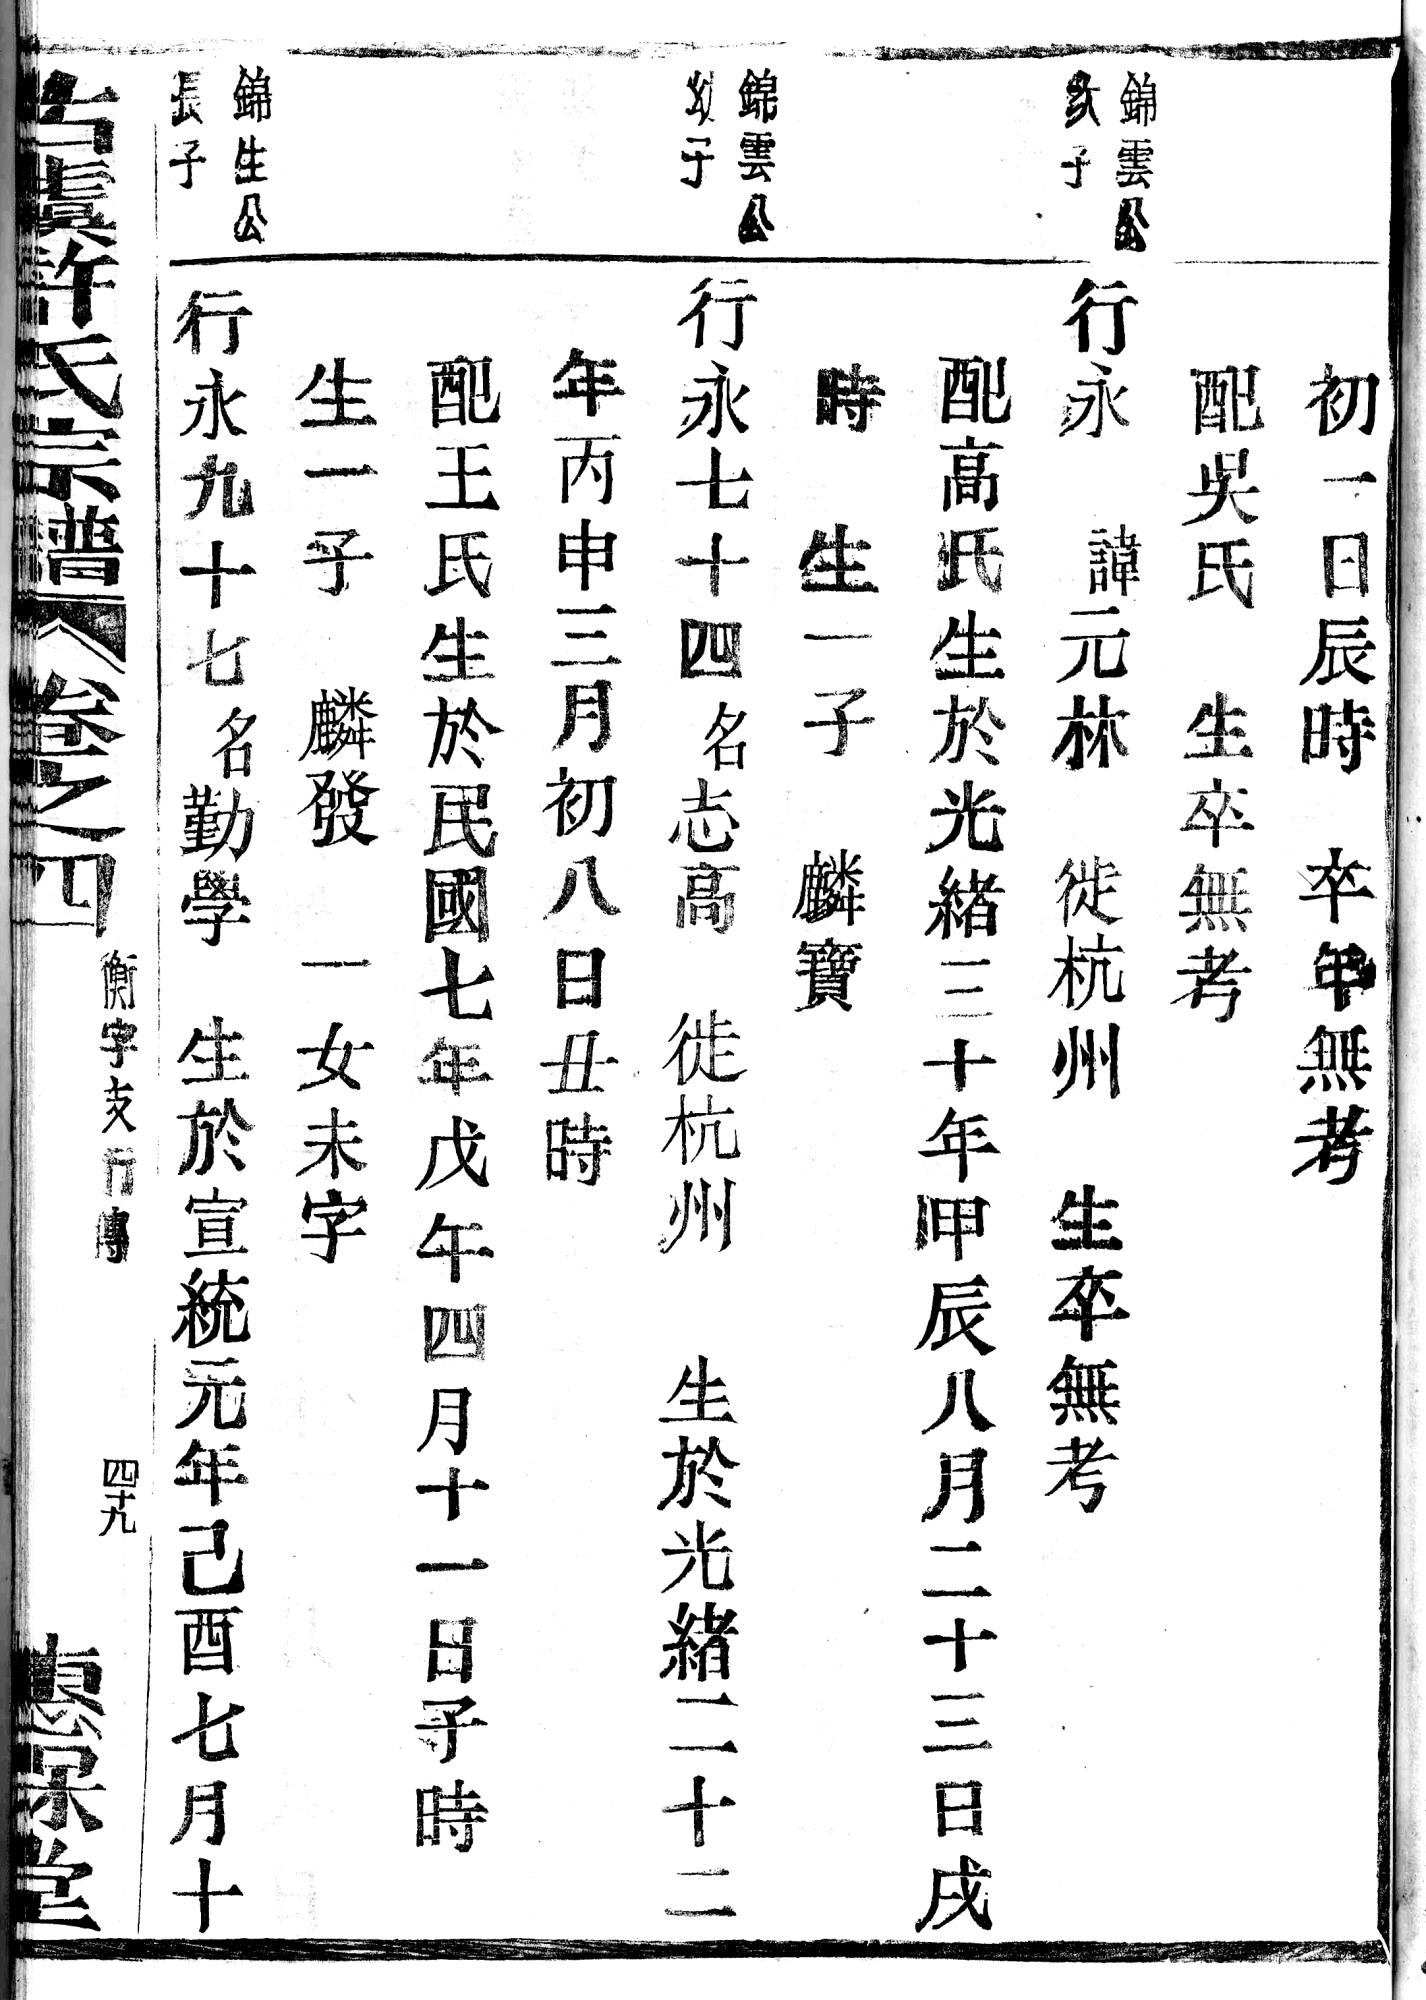 初一日辰時　卒年無考
配吳氏　生卒無考
錦雲公
子
行永　諱元林　徙杭州　生卒無考
配高氏生於光緒三十年甲辰八月二十三日戌
時　生一子　麟寶
錦雲公
幼子
行永七十四名志高　徙杭州　生於光緒二十二
年丙申三月初八日丑時
配王氏生於民國七年戊午四月十一日子時
生一子　麟發　一女未字
錦生公
長子
行永九十七名勤學　生於宣統元年己酉七月十
古虞許氏宗譜　卷之四
衡字支行傳
四十九
堂